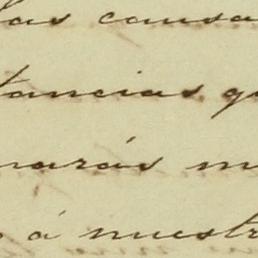 las causa
tancias qu
narás m
á nuestr